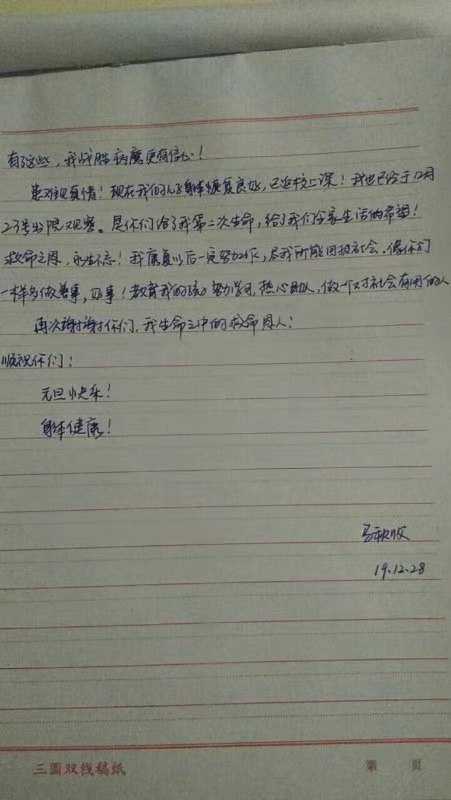 有这些，我战胜病魔更有信心！
患难见真情！现在我的儿子身体恢复良好，已返校上课！我也已给于12月
23号出院观察。是你们给了我第二次生命，给了我们全家生活的希望！
救命之恩，永生不忘！我康复以后一定努力工作，尽我所能回报社会，像你们
一样多做善事，好事！教育我的孩子努力学习，热心助人，做一个对社会有用的人
再次谢谢你们，我生命之中的救命恩人！
顺祝你们：
元旦快乐！
身体健康！
马秋收
19.12.28
三圆双线稿纸
第 页